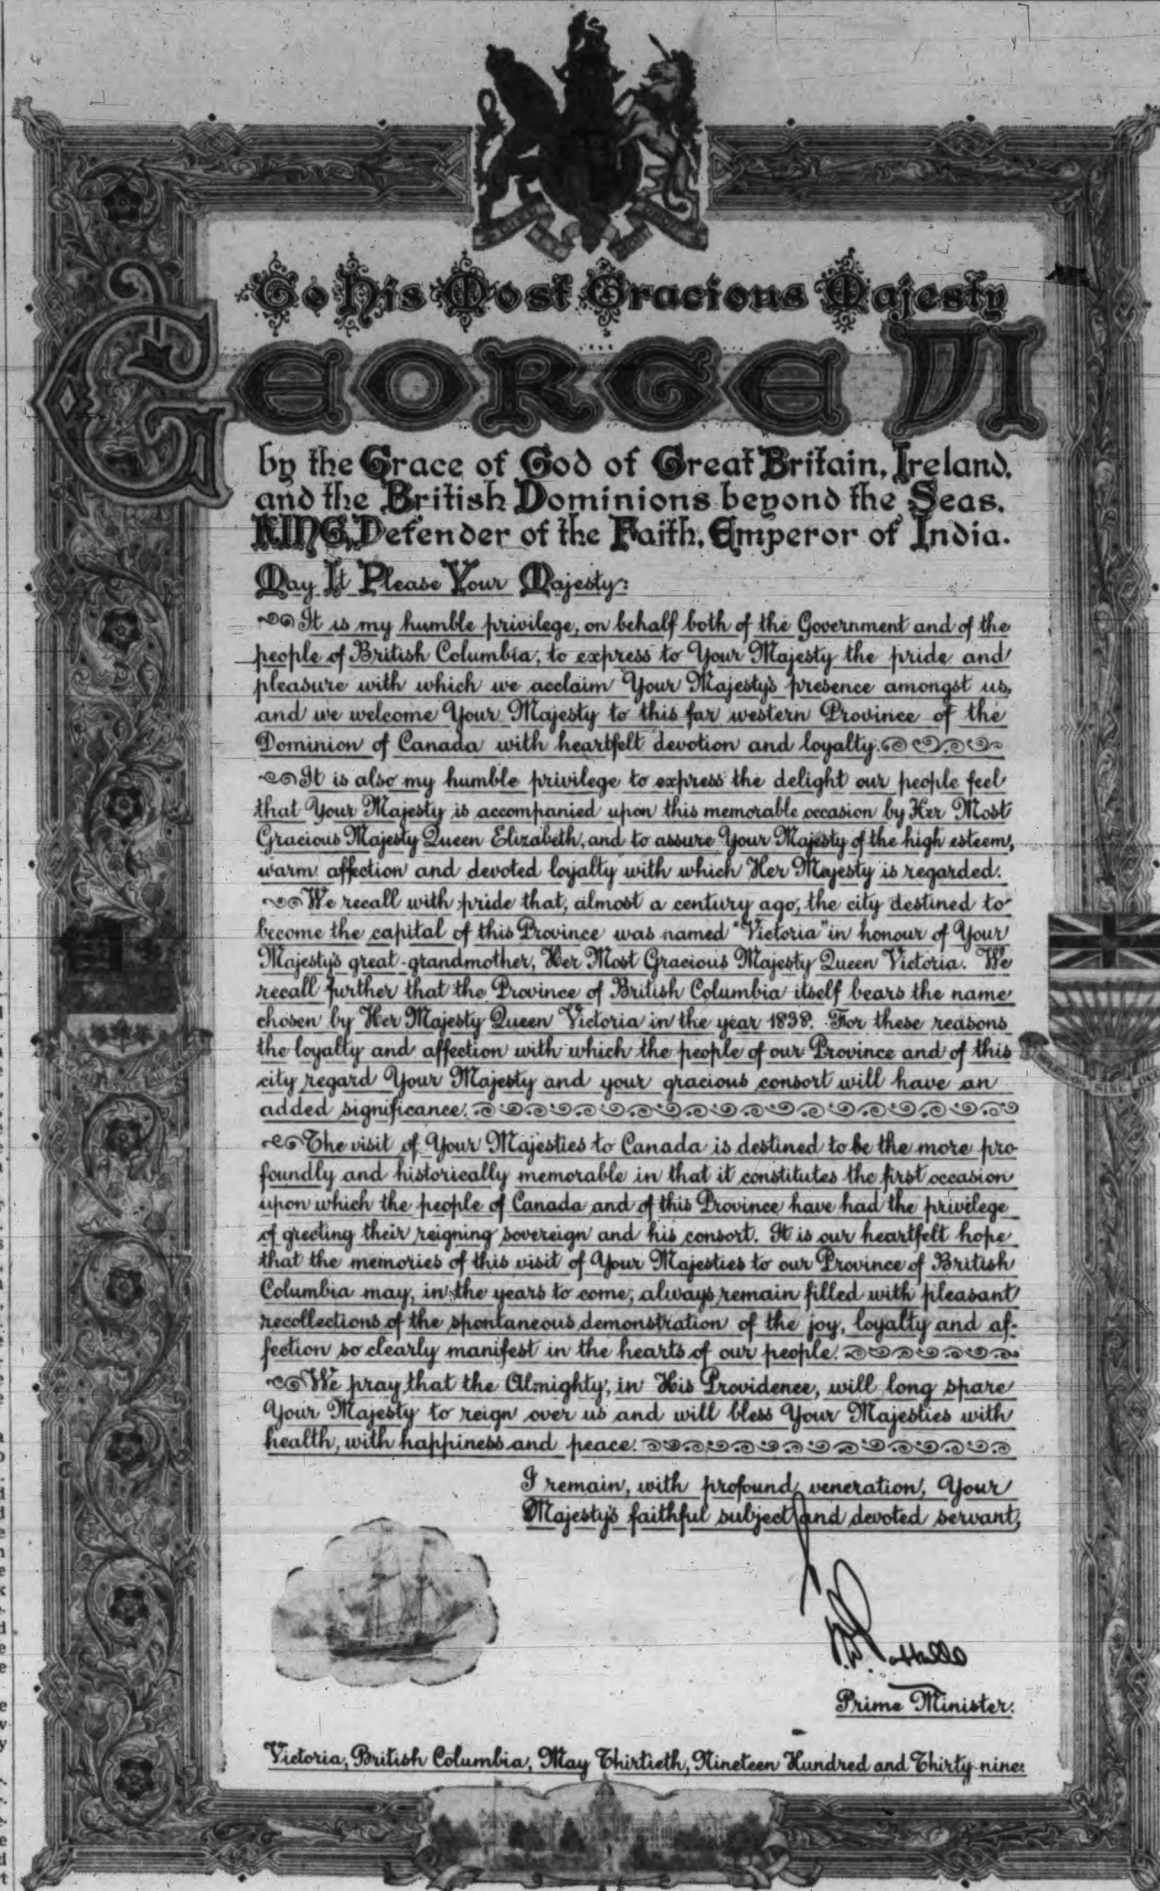 To His Most Gracious Majesty
GEORGE VI
by the Grace of God of Great Britain, Ireland,
and the British Dominions beyond the Seas,
KING, Defender of the Faith, Emperor of India.
May It Please Your Majesty:
It is my humble privilege, on behalf both of the Government and of the
people of British Columbia, to express to Your Majesty the pride and
pleasure with which we acclaim Your Majesty's presence amongst us,
and we welcome Your Majesty to this far western Province of the
Dominion of Canada with heartfelt devotion and loyalty.
It is also my humble privilege to express the delight our people feel
that Your Majesty is accompanied upon this memorable occasion by Her Most
Gracious Majesty Queen Elizabeth, and to assure Your Majesty of the high esteem,
warm affection and devoted loyalty with which Her Majesty is regarded.
We recall with pride that, almost a century ago, the city destined to
become the capital of this Province was named "Victoria" in honour of Your
Majesty's great-grandmother, Her Most Gracious Majesty Queen Victoria. We
recall further that the Province of British Columbia itself bears the name
chosen by Her Majesty Queen Victoria in the year 1858. For these reasons
the loyalty and affection with which the people of our Province and of this
city regard Your Majesty and your gracious consort will have an
added significance.
The visit of Your Majesties to Canada is destined to be the more pro-
foundly and historically memorable in that it constitutes the first occasion
upon which the people of Canada and of this Province have had the privilege
of greeting their reigning sovereign and his consort. It is our heartfelt hope
that the memories of this visit of Your Majesties to our Province of British
Columbia may, in the years to come, always remain filled with pleasant
recollections of the spontaneous demonstration of the joy, loyalty and af-
fection so clearly manifest in the hearts of our people.
We pray that the Almighty, in His Providence, will long spare
Your Majesty to reign over us and will bless Your Majesties with
health, with happiness and peace.
I remain, with profound veneration, Your
Majesty's faithful subject and devoted servant,
Prime Minister.
Victoria, British Columbia, May Thirtieth, Nineteen Hundred and Thirty-nine.